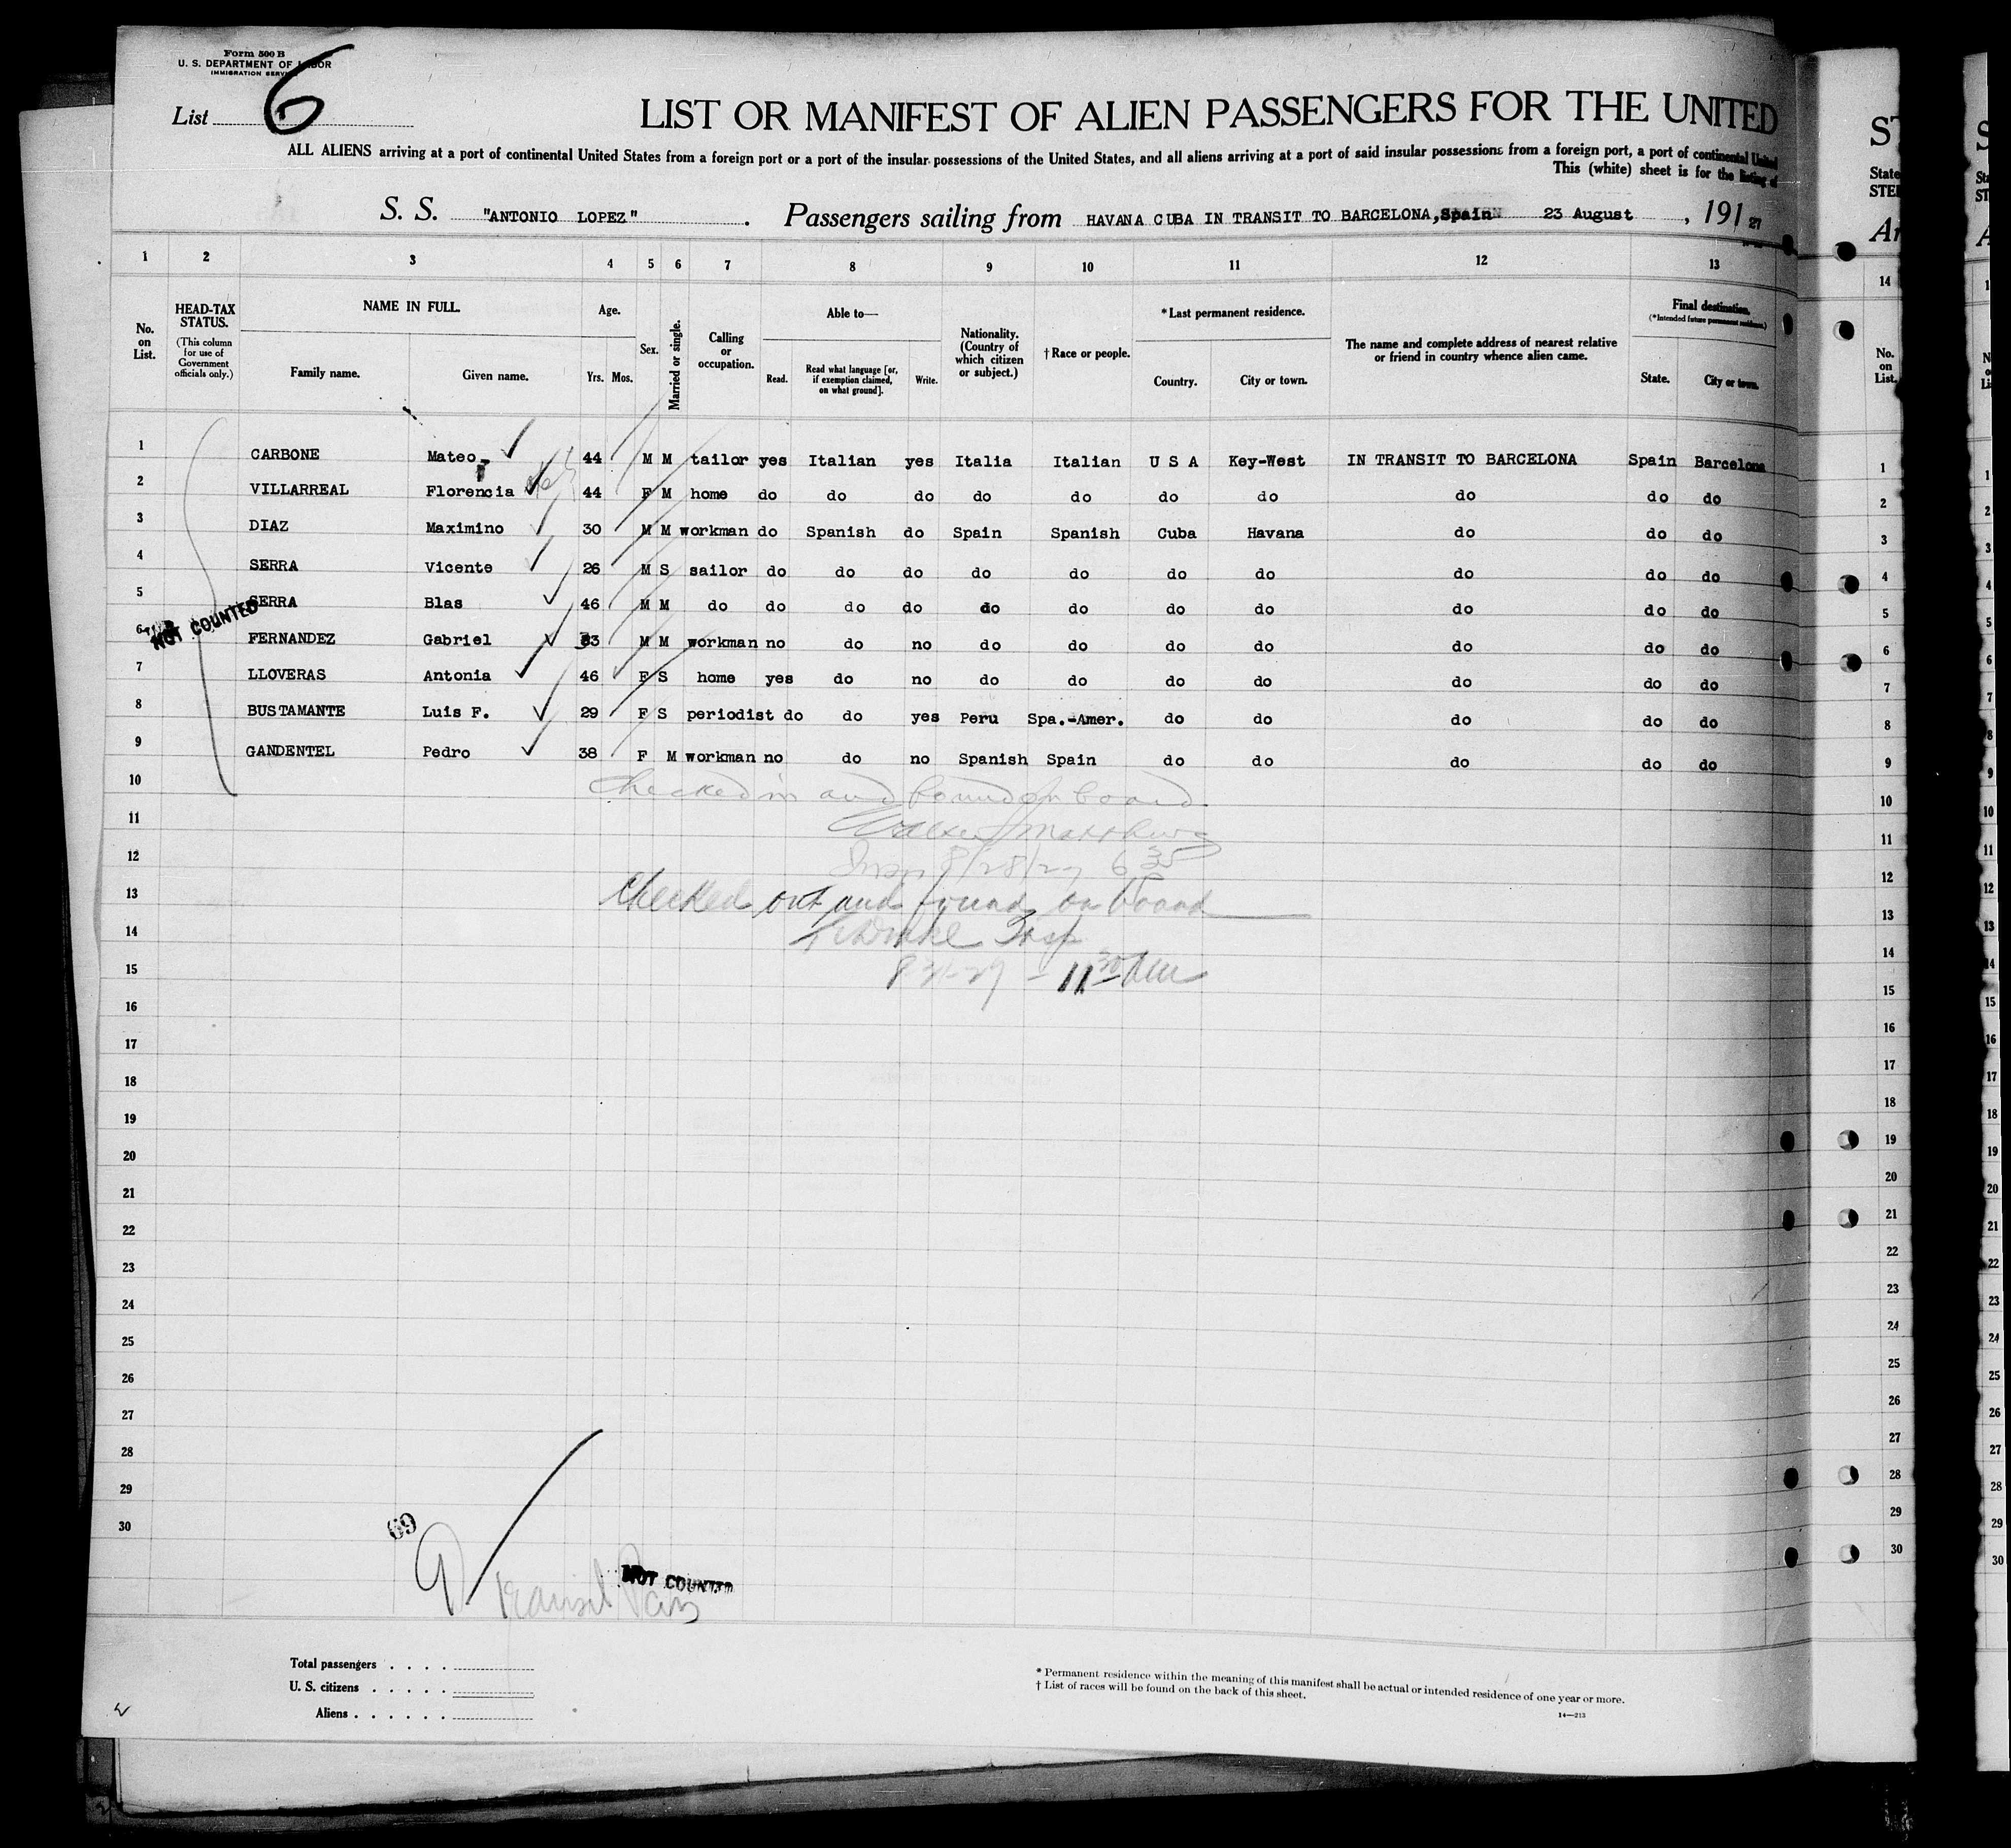 Form 500 B
U. S. DEPARTMENT OF LABOR
IMMIGRATION SERVICE
List 6
LIST OR MANIFEST OF ALIEN PASSENGERS FOR THE UNITED
ALL ALIENS arriving at a port of continental United States from a foreign port or a port of the insular possessions of the United States, and all aliens arriving at a port of said insular possessions from a foreign port, a port of continental United
This (white) sheet is for the listing of
S. S. "ANTONIO LOPEZ" . Passengers sailing from HAVANA CUBA IN TRANSIT TO BARCELONA, Spain 23 August , 191 27
1 2 3 4 5 6 7 8 9 10 11 12 13
No. on List.
HEAD-TAX STATUS.
(This column for use of Government officials only.)
NAME IN FULL.
Family name. Given name.
Age.
Yrs. Mos.
Sex.
Married or single.
Calling or occupation.
Able to—
Read. Read what language [or, if exemption claimed, on what ground]. Write.
Nationality. (Country of which citizen or subject.)
† Race or people.
* Last permanent residence.
Country. City or town.
The name and complete address of nearest relative or friend in country whence alien came.
Final destination.
(*Intended future permanent residence.)
State. City or town.
1 CARBONE Mateo 44 M M tailor yes Italian yes Italia Italian U S A Key-West IN TRANSIT TO BARCELONA Spain Barcelona
2 VILLARREAL Florencia 44 F M home do do do do do do do do do do
3 DIAZ Maximino 30 M M workman do Spanish do Spain Spanish Cuba Havana do do do
4 SERRA Vicente 26 M S sailor do do do do do do do do do do
5 SERRA Blas 46 M M do do do do do do do do do do do
6 FERNANDEZ Gabriel 33 M M workman no do no do do do do do do do
7 LLOVERAS Antonia 46 F S home yes do no do do do do do do do
8 BUSTAMANTE Luis F. 29 F S periodist do do yes Peru Spa.-Amer. do do do do do
9 GANDENTEL Pedro 38 F M workman no do no Spanish Spain do do do do do
NOT COUNTED
10 Checked in and found on board
11
12 Insp 8/28/27 6 35
13 Checked out and found on board
14 Insp
15 8-31-27 - 11 30 AM
16
17
18
19
20
21
22
23
24
25
26
27
28
29
30
69
9 Transit Pass
NOT COUNTED
Total passengers
U. S. citizens
Aliens
* Permanent residence within the meaning of this manifest shall be actual or intended residence of one year or more.
† List of races will be found on the back of this sheet.
14—213
ST
State
STE
Ar
14
No. on List.
1
2
3
4
5
6
7
8
9
10
11
12
13
14
15
16
17
18
19
20
21
22
23
24
25
26
27
28
29
30